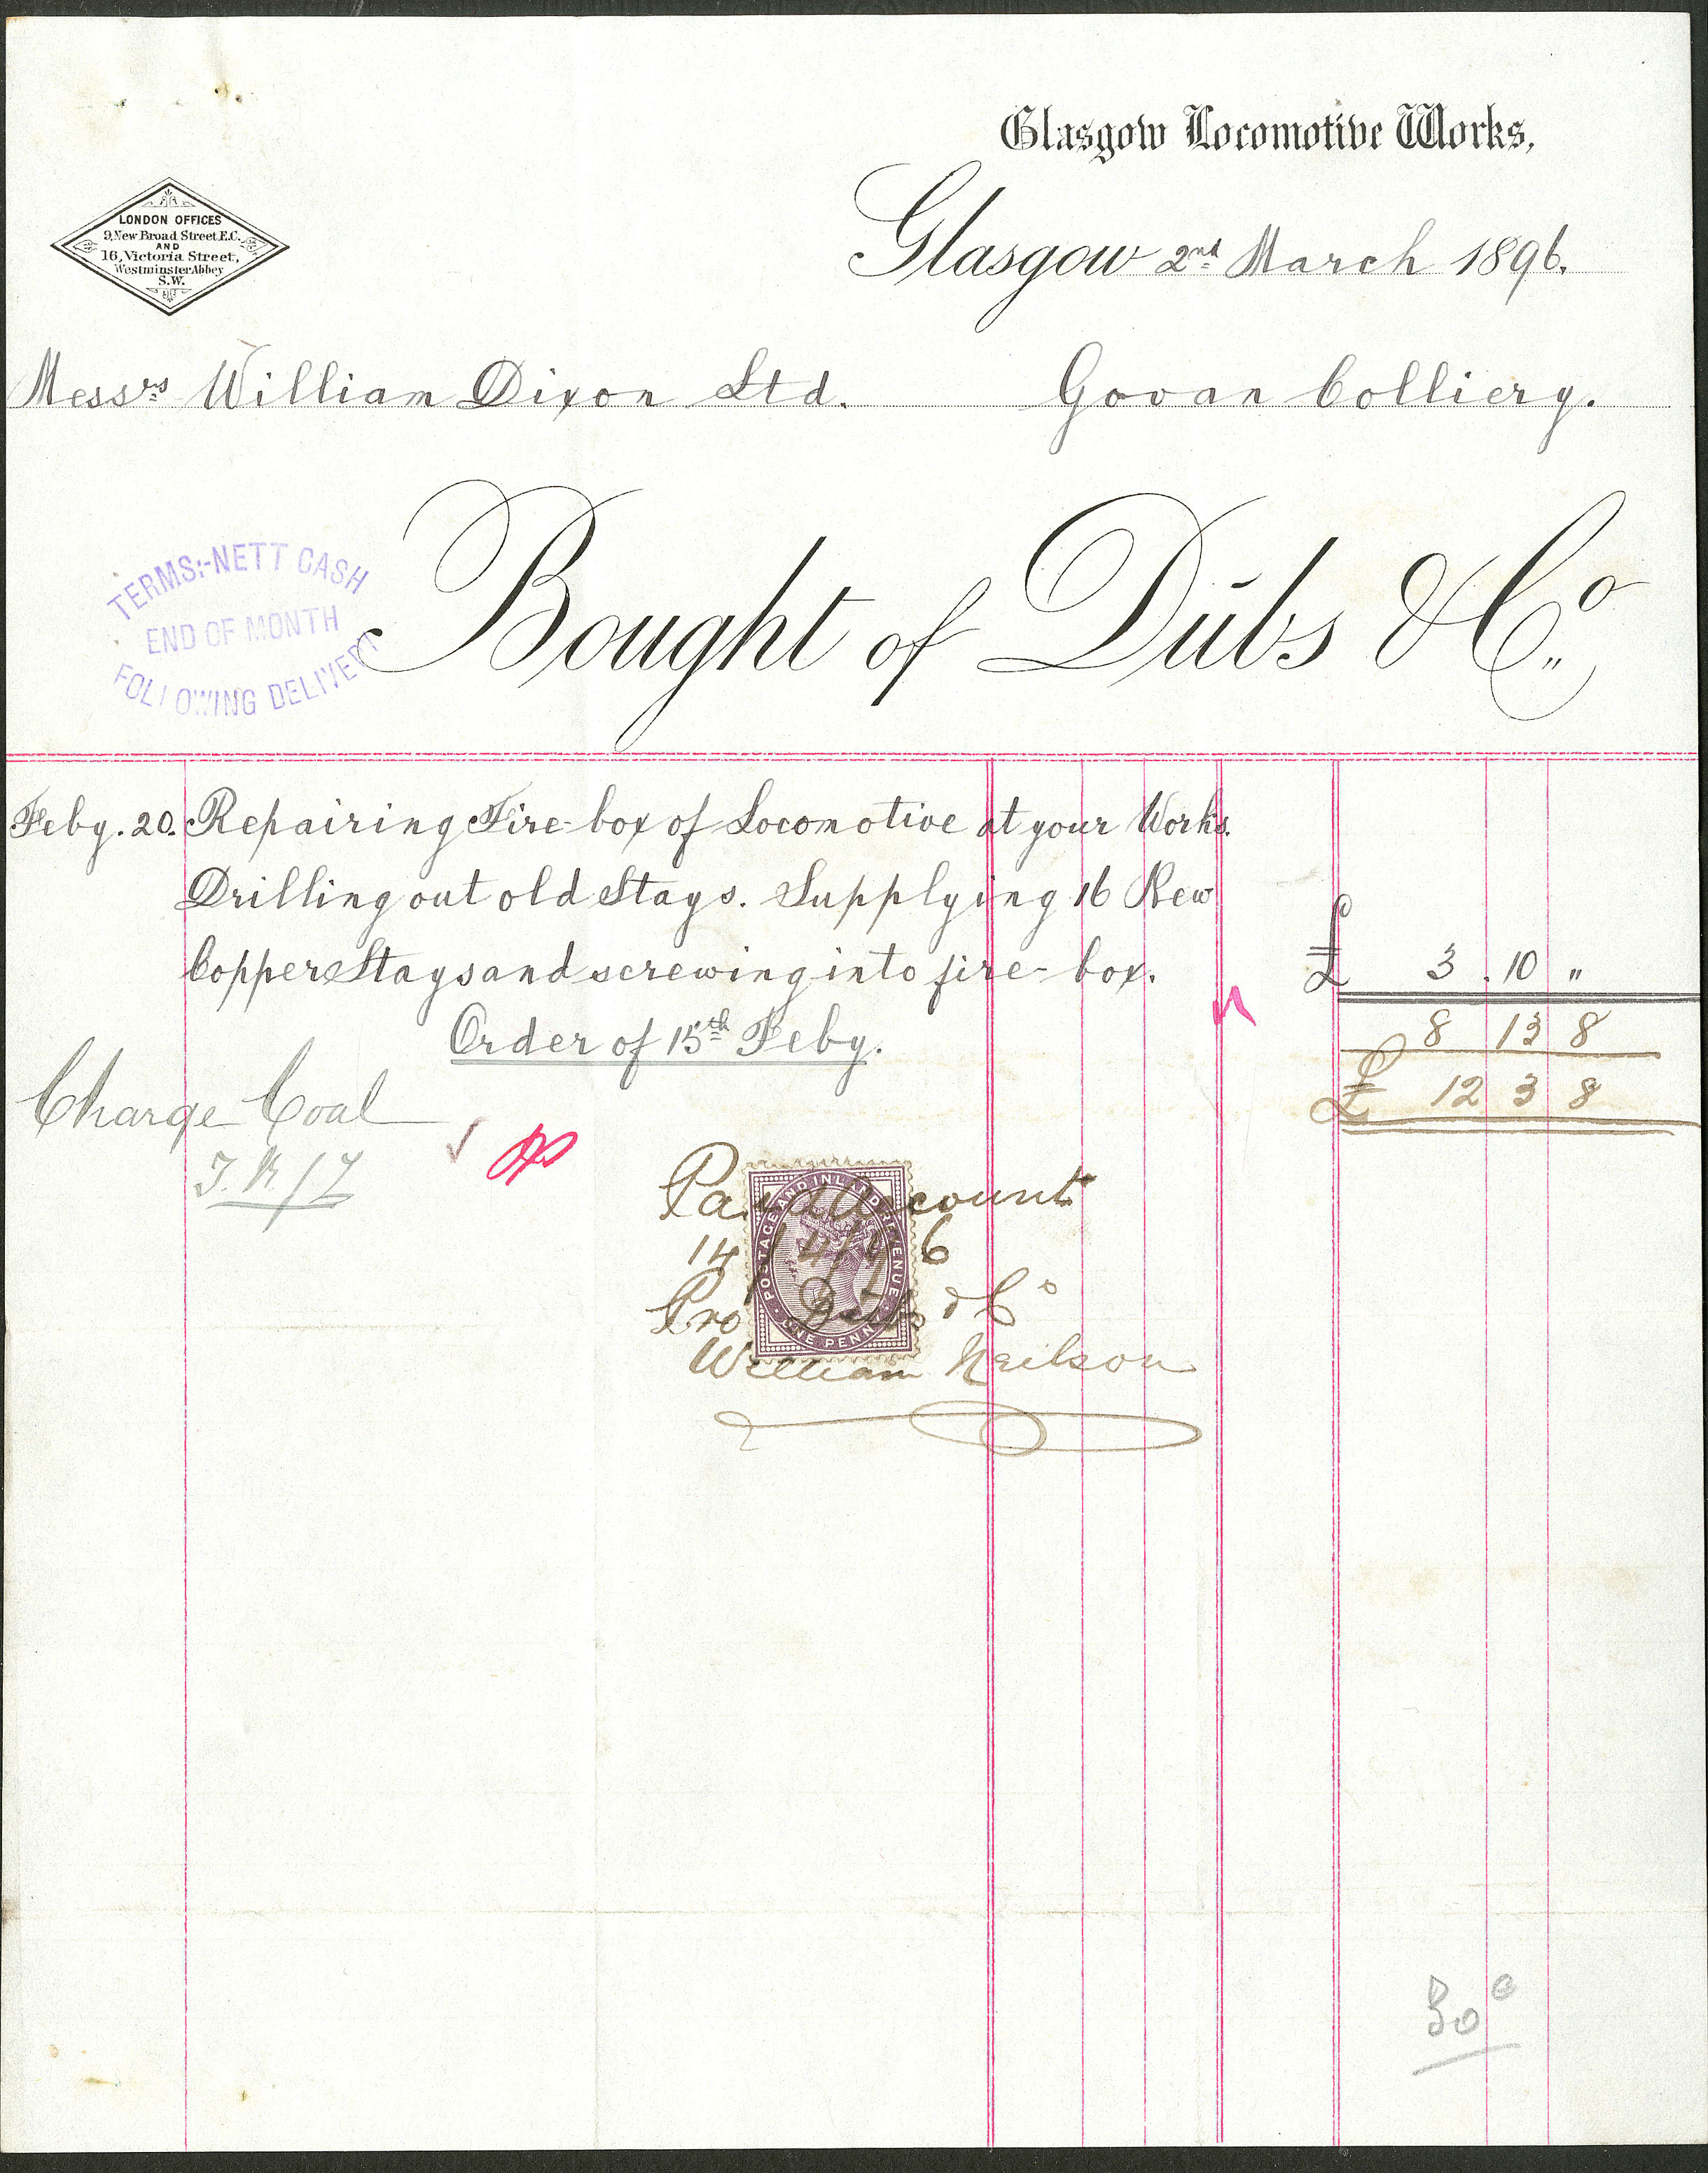 Glasgow Locomotive Works,
LONDON OFFICES
9, New Broad Street, E.C.
AND
16, Victoria Street,
Westminster Abbey
S.W.
Glasgow 2nd March 1896.
Messrs William Dixon Ltd. Govan Colliery.
TERMS:-NETT CASH
END OF MONTH
FOLLOWING DELIVERY
Bought of Dübs & Co.
Feby. 20. Repairing Fire-box of Locomotive at your Works.
Drilling out old Stays. Supplying 16 New
Copper Stays and screwing into fire-box. £ 3 . 10 "
Order of 15th Feby.
8 13 8
£ 12 3 8
Charge Coal
Paid Account
14/4/96
Pro Dübs & Co
William Neilson
POSTAGE AND INLAND REVENUE
ONE PENNY